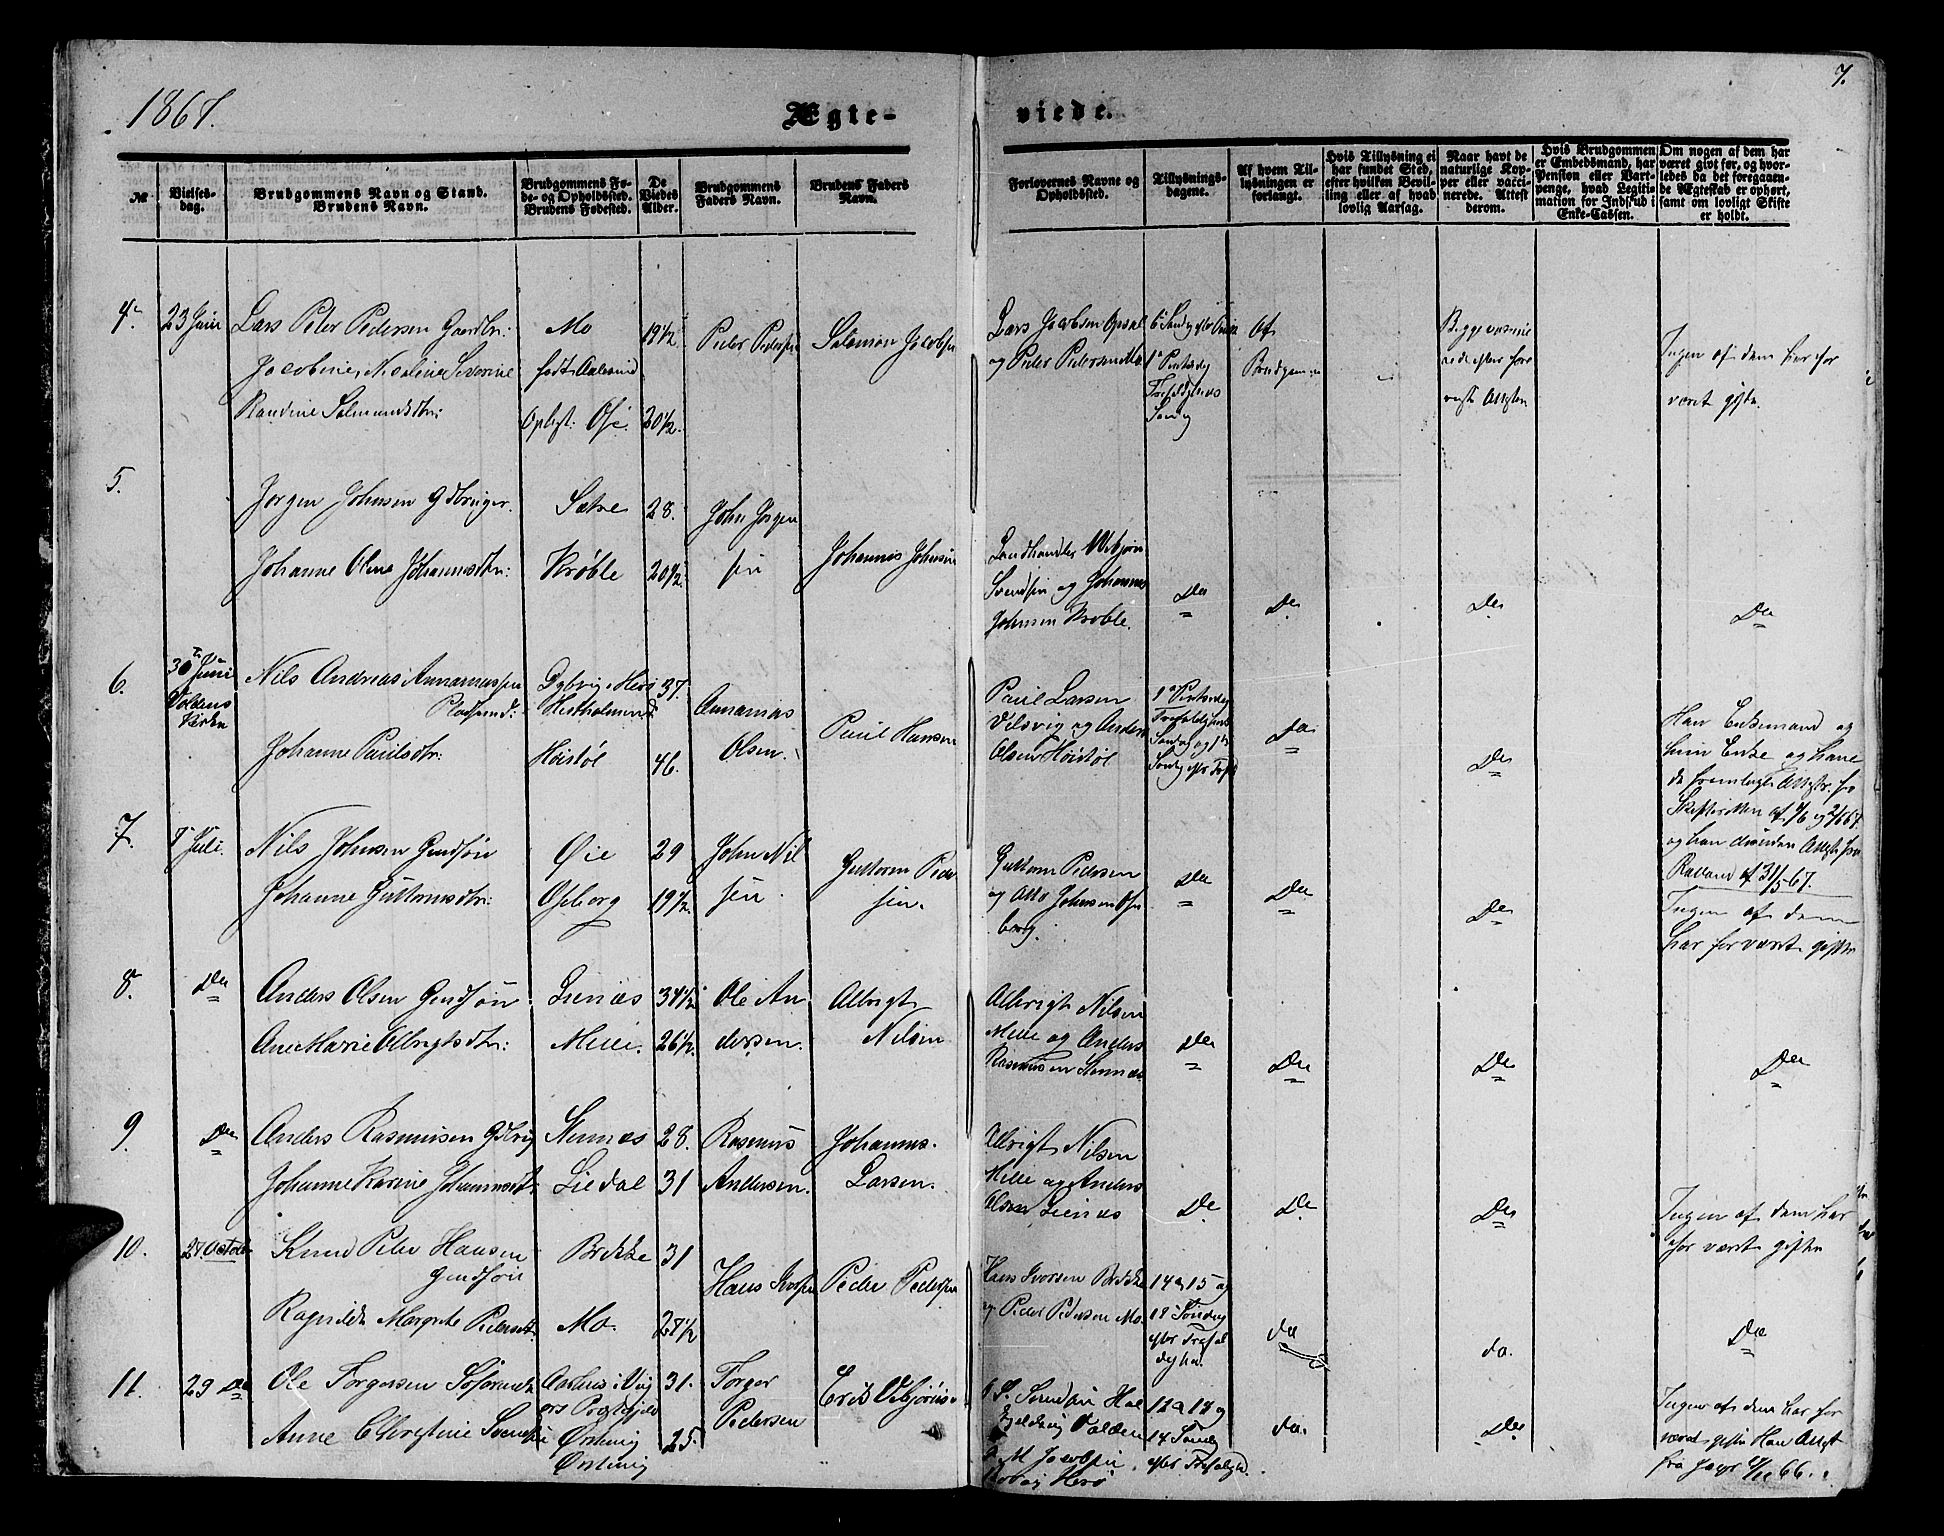 1867.
Ægte-
viede.
7.
№
Vielses-
dag.
Brudgommens Navn og Stand.
Brudens Navn.
Brudgommens Fø-
de- og Opholdssted.
Brudens Fødested.
De
Viedes
Alder.
Brudgommens
Faders Navn.
Brudens Faders
Navn.
Forlovernes Navne og
Opholdssted.
Tillysnings-
dagene.
Af hvem Til-
lysningen er
forlangt.
Hvis Tillysning ei
har fundet Sted,
efter hvilken Bevil-
ling eller af hvad
lovlig Aarsag.
Naar havt de
naturlige Kop-
per eller vacci-
nerede. Attest
derom.
Hvis Brudgommen
er Embedsmand, har
Pension eller Vart-
penge, hvad Legiti-
mation for Indskud i
Enke-Cassen.
Om nogen af dem har
været givt før, og hvor-
ledes da det foregaaen-
de Ægteskab er ophørt,
samt om lovligt Skifte
er holdt.
4.
23 Juni
Lars Peter Pedersen Gaardbr:
Jacobine Nicoline Severine
Randine Salmundsdtr:
Mo
født Aalesund
Oplagt: Ose.
19 1/2
20 1/2.
Peder Pedersen
Salamon Jacobsen
Lars Jacobsen
og Peder Pedersen Mo
6 Søndag efter
1 Pintsedag
Trefoldigheds
Søndag
Af
Brudgommen
Begge vaccine
rede efter fore
viste Attester
Ingen af dem har før
været gifte.
5.
Jørgen Johnsen Gdbruger.
Johanne Oline Johannesdtr:
Sætre
Krøble
28.
20 1/2.
John Jørgen
sen
Johannes Johnsen
Landhandler Vibjørn
Svendsen og Johannes
Johnsen Krøble.
Do
Do
Do
Do
6.
30 Juni
Voldens
Kirke
Nils Andreas Annaniassen
Pladsmd:
Johanne Paulsdtr:
Herø
Høistøl
37.
46.
Annanias
Olsen.
Paul Hansen
Paul Larsen
Vilsvig og Anders
Olsen Høistøl
1 Pintsedag
Trefoldigheds
Søndag og 1
Søndag efter Tref
Do
Do
Han Enkemand og
hun Enke og have
de fremlagte Attester fra
Skifteretten af
og han desuden Attest fra
af 31/5 67.
7.
7 Juli.
Nils Johnsen Gmdsøn
Johanne Guttormsdtr:
Øie
Oseborg
29
19 1/2.
John Nil
sen.
Guttorm Peder
sen.
Guttorm Pedersen
og Johnsen Ose
borg.
Do
Do
Do
Ingen af dem
har før været gifte
8.
Do
Anders Olsen Gmdsøn
Ane Marie Albrigtsdtr:
Lienæs
Melle.
34 1/2
26 1/2.
Ole An
dersen.
Albrigt
Nilsen
Albrigt Nilsen
Melle og Anders
Rasmussen
Do
Do
Do
Do
9.
Do
Anders Rasmussen Gdbrug
Johanne Karine Johannesdt:
Liedal
28.
31
Rasmus
Andersen.
Johannes.
Larsen.
Albrigt Nilsen
Melle og Anders
Olsen Lienæs
Do
Do
Do
Ingen af dem har
før været gifte
10.
27 October
Knud Peter Hansen
Gmdsøn
Ragnilde Margrete Pedersdt
Brekke
Mo.
31
27 1/2
Hans Iversen
Peder Pedersen
Hans Iversen Brekke
og Peder Pedersen Mo.
14, 15 og
18 Søndag
efter Trefol
digh.
do
do.
Do
11.
29 Do
Ole Torgersen
Anne Christine
Aarhus i Vinj
ers Præstegjeld
Ørstenvig
Ørstenvig
31.
25.
Torger
Pedersen
Erik Vebjørnsen
Svendsen
Volden
M Jacobsen
Herø
12, 13 og
14 Søndag
efter Trefoldigh.
do.
Do
Ingen af dem har før
været gifte Han Attest
fra 66.